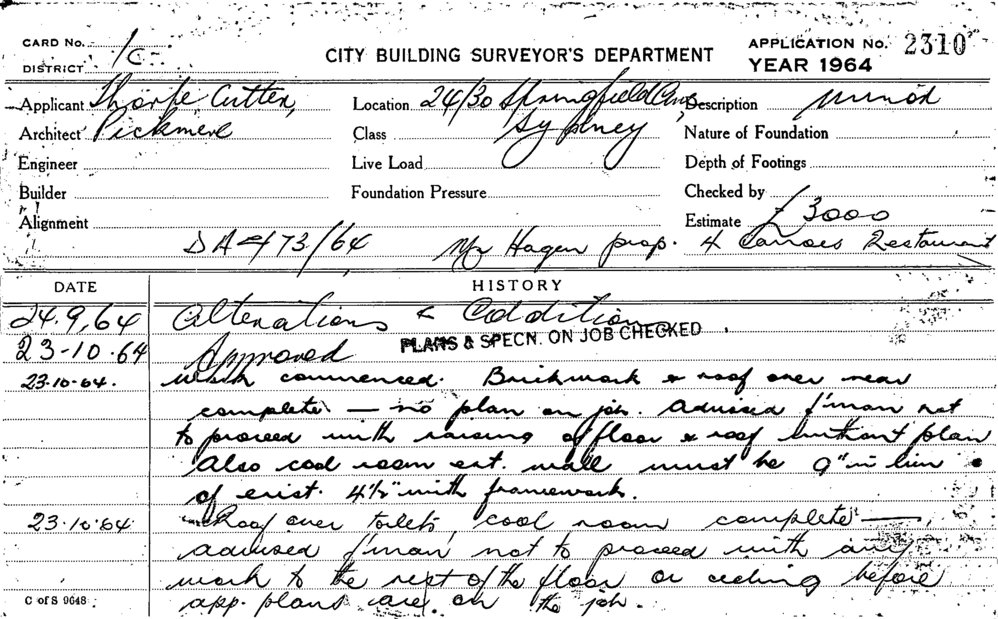 CARD No. 1c
DISTRICT
CITY BUILDING SURVEYOR'S DEPARTMENT
APPLICATION No. 2310
YEAR 1964
Applicant Thorpe Cutter,
Location 24/30 Springfield Ave,
Description minor
Architect Pickmere
Class Sydney
Nature of Foundation
Engineer
Live Load
Depth of Footings
Builder
Foundation Pressure
Checked by
Alignment
Estimate £3000
DA 473/64 Mr Hagen prop. 4 Canoes Restaurant
DATE HISTORY
24.9.64 Alterations & Addition
PLANS & SPECN. ON JOB CHECKED
23-10-64 Approved
23.10.64. Work commenced. Brickwork & roof over rear
complete — no plan on job. Advised f'man not
to proceed with raising of floor & roof without plan
Also cool room ext. wall must be 9" in lieu
of exist. 4½" with framework.
23.10.64 Roof over toilets, cool room complete —
advised f'man not to proceed with any
work to the rest of the floor or ceiling before
app. plans are on the job.
C of S 9648